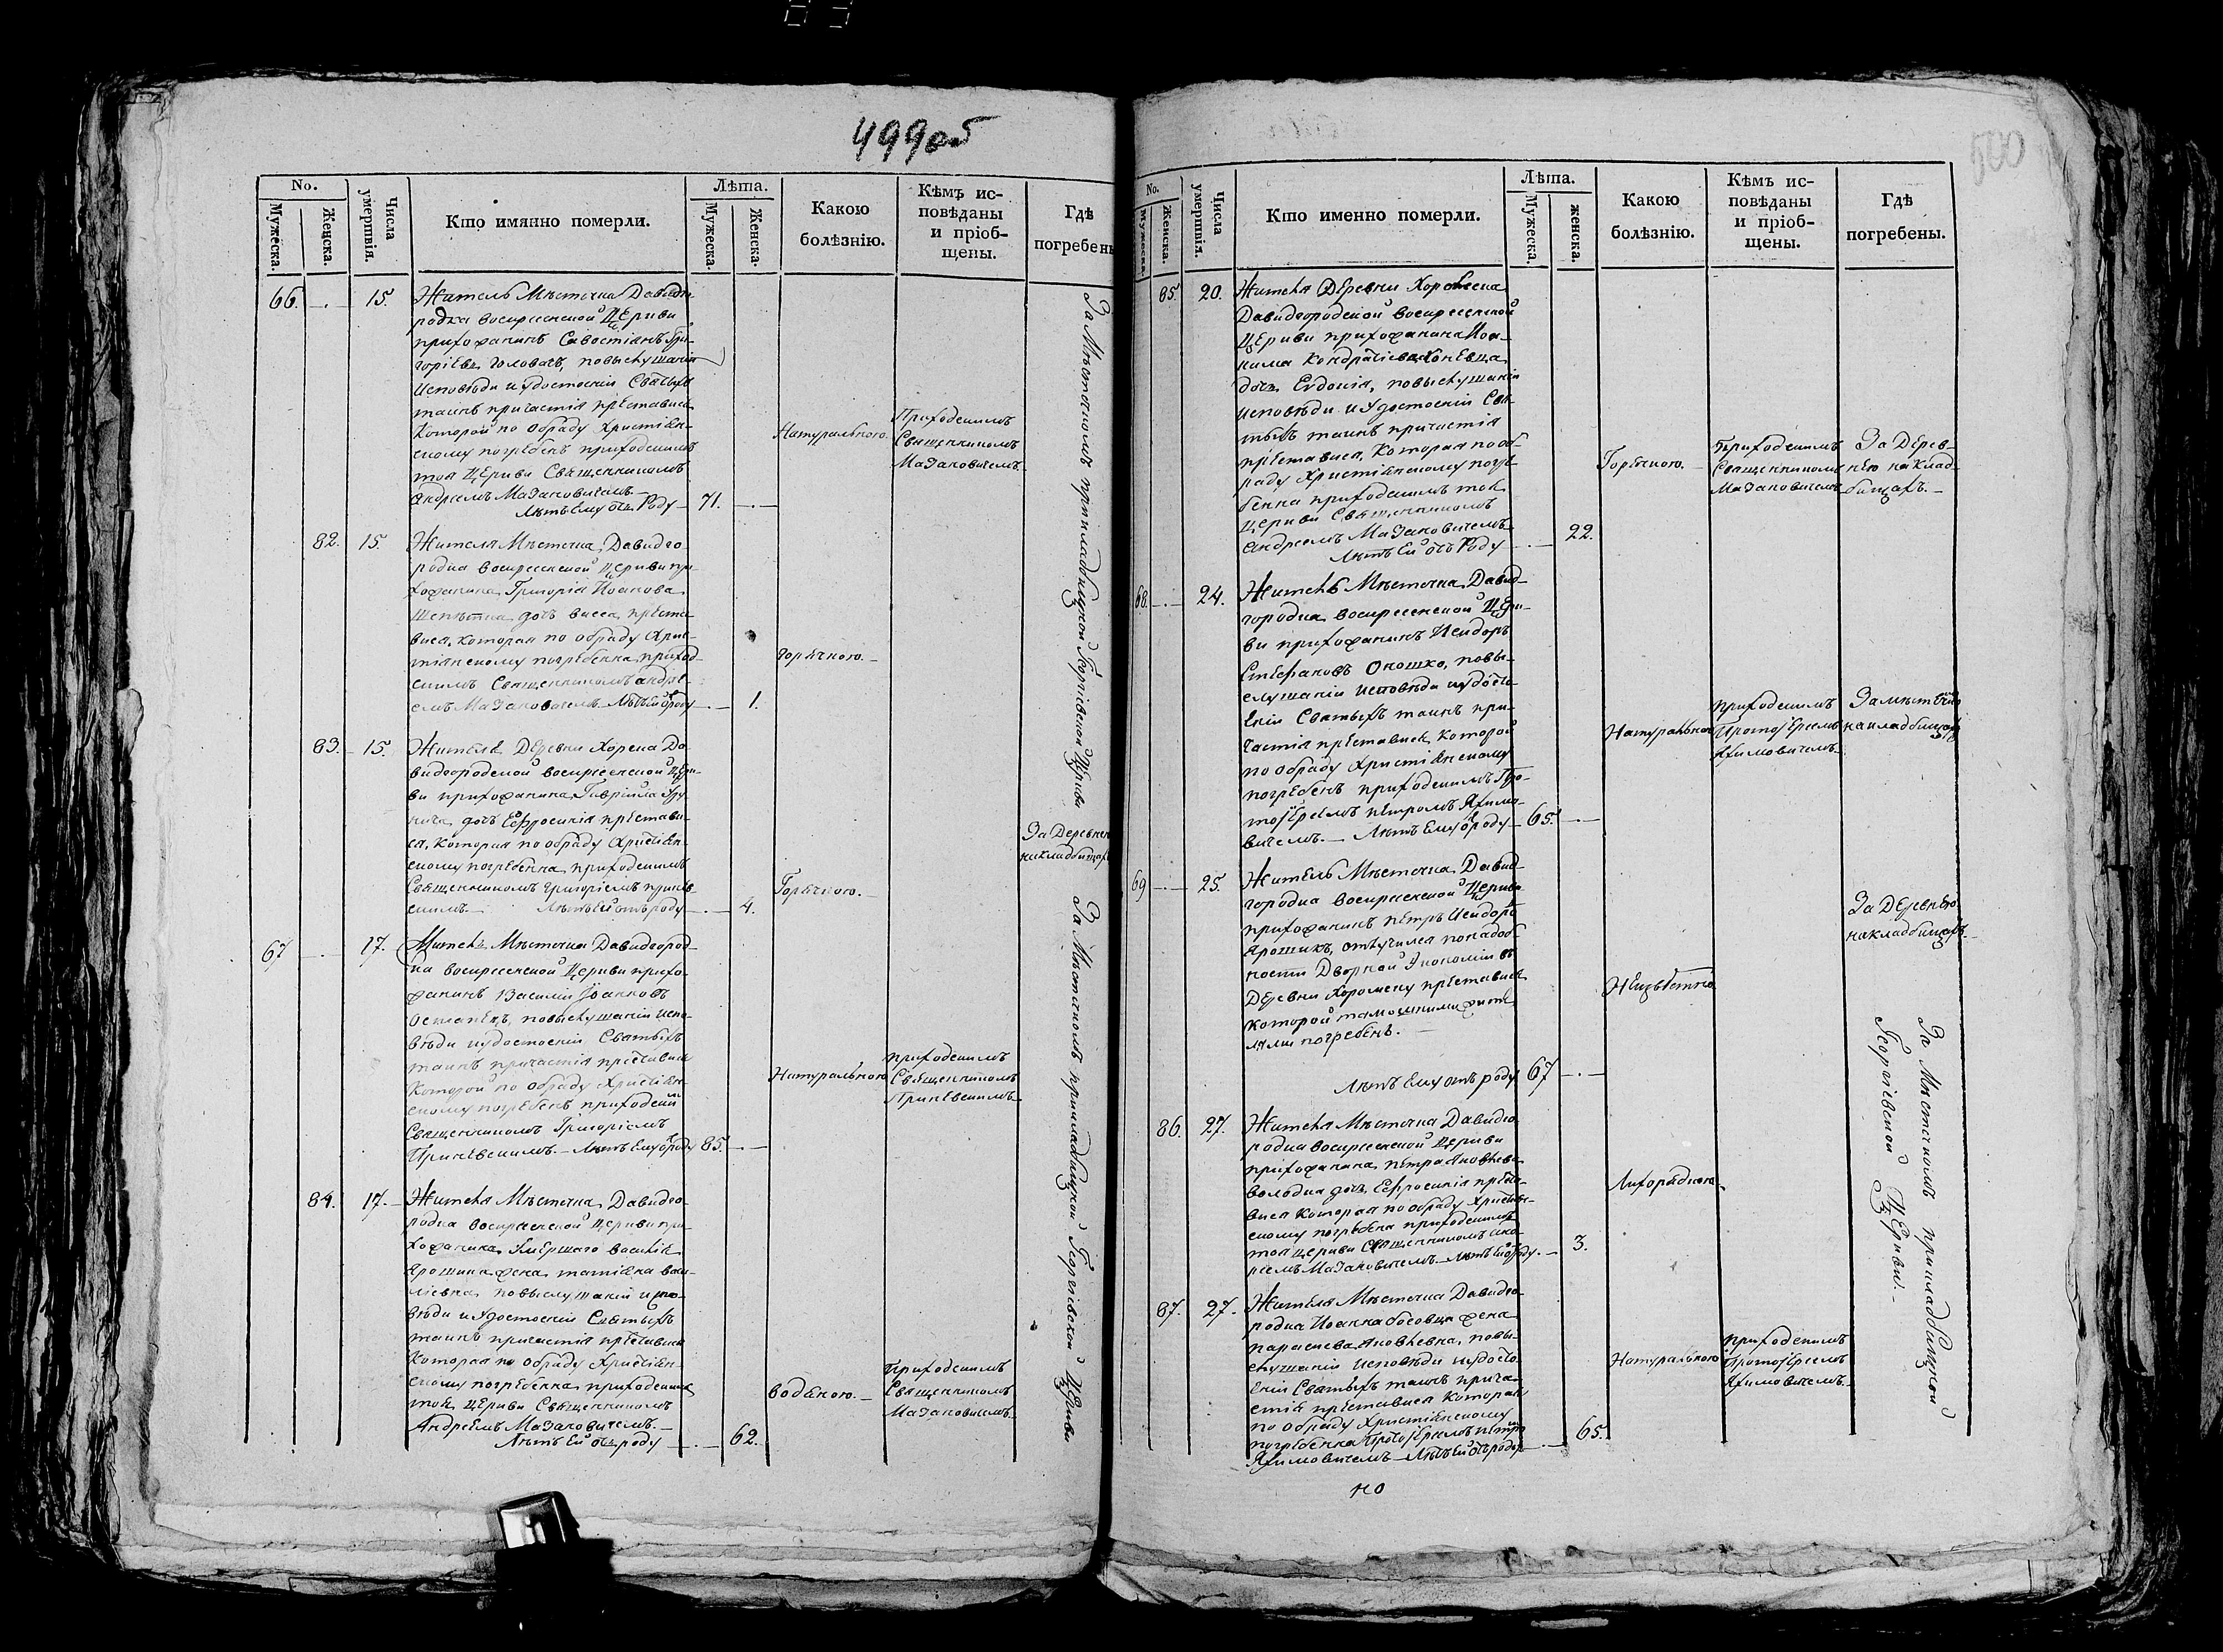 499об
No.
Мужеска.
Женска.
Числа умертвія.
Кто имянно померли.
Лѣта.
Мужеска.
Женска.
Какою болѣзнію.
Кѣмъ исповѣданы и пріобщены.
Гдѣ погребены
66. 15.
Житель Мѣстечка Давидго
родка воскресенской Церкви
прихожанинъ Савостіянъ Гри-
горіевъ Головачъ, повыслушаніи
исповѣди и удостоеніи Святыхъ
таинъ причастія преставися
которой по обряду Христіян-
скому погребенъ приходскимъ
тоя Церкви Священникомъ
Андреемъ Мазановичемъ
Лѣтъ Ему отъ Роду 71.
Натуральною.
Приходскимъ
Священникомъ
Мазановичемъ.
82. 15.
Жителя Мѣстечка Давидго
родка воскресенской Церкви при
хожанина Григорія Иоанова
дочь васса преста
вися, которая по обряду Хрис-
тіянскому погребенна приход-
скимъ Священникомъ андре-
емъ Мазановичемъ Лѣтъ ей отъ роду 1.
Горячкою.
83. 15.
Жителя Деревни Хорска Да
видгородской воскресенской Церк-
ви прихожанина Гавріила
дочь Ефросинія престави-
ся, Которая по обряду Христіян-
скому погребенна приходскимъ
Священникомъ григоріемъ
скимъ. Лѣтъ ей отъ роду 4.
Горячкою.
За Деревнею
накладбищахъ
67 17.
Житель Мѣстечка Давидгород-
ка воскресенской Церкви прихо-
жанинъ Василій Іоанновъ
повыслушаніи испо-
вѣди и удостоеніи Святыхъ
таинъ причастія преставися
Которой по обряду Христіян-
скому погребенъ приходским
Священникомъ Григоріемъ
Лѣтъ Ему отъ роду 85.
Натуральною
приходскимъ
Священникомъ
84. 17.
Жителя Мѣстечка Давидго
родка воскресенской Церкви при
хожанина Умершаго василія
Ярошика жена татіяна васи-
ліевна повыслушаніи испо-
вѣди и Удостоеніи Святыхъ
таинъ причастія преставися
Которая по обряду Христіян
скому погребенна приходским
тоя Церкви Священникомъ
Андреемъ Мазановичемъ.
Лѣтъ Ей отъ роду 62.
водяною.
Приходскимъ
Священникомъ
Мазановичемъ.
За Мѣстечкомъ прикладбищной Георгіевской Церкви
За Мѣстечкомъ прикладбищной Георгіевской Церкви
500
No.
Мужеска.
Женска.
Числа умертвія.
Кто именно померли.
Лѣта.
Мужеска.
женска.
Какою болѣзнію.
Кѣмъ исповѣданы и пріобщены.
Гдѣ погребены.
85. 20.
Жителя Деревни
Давидгородской воскресенской
Церкви прихожанина Иоа-
кима Кондратіева
дочь Евдокія, повыслушаніи
исповѣди и Удостоеніи Свя-
тыхъ таинъ причастія
преставися, Которая по об-
ряду Христіянскому погре-
бенна приходскимъ тоя
Церкви Священникомъ
Андреемъ Мазановичемъ
Лѣтъ Ей отъ Роду 22.
Горячкою.
Приходскимъ
Священникомъ
Мазановичемъ
За Дерев-
нею наклад-
бищахъ.
68. 24.
Житель Мѣстечка Давид-
городка воскресенской Церк-
ви прихожанинъ Исидоръ
Стефановъ Окошко, повы-
слушаніи исповѣди и удосто
еніи Святыхъ таинъ при-
частія преставися, которой
по обряду Христіянскому
погребенъ приходскимъ Про-
тоіереемъ петромъ Якимо-
вичемъ. Лѣтъ Ему отъ роду 65.
Натуральною
приходскимъ
Протоіереемъ
Якимовичемъ.
За мѣстечкомъ
накладбищахъ
69 25.
Житель Мѣстечка Давид-
городка воскресенской Церкви
прихожанинъ петръ Исидоровъ
Ярошикъ, отлучился понадоб-
ности Дворной Экономіи въ
Деревни преставися
которой тамошними жите
лями погребенъ.
Лѣтъ Ему отъ роду 67
Неизвѣстно
За Деревнею
накладбищахъ.
86. 27.
Жителя Мѣстечка Давидго
родка воскресенской Церкви
прихожанина петра Яковлева
володка дочь Ефросинія преста
вися которая по обряду Христіян-
скому погребена приходским
тоя церкви Священникомъ анд
реемъ Мазановичемъ. Лѣтъ ей отъ роду. 3.
Лихорадкою.
87. 27.
Жителя Мѣстечка Давидго
родка Иоанна босовца жена
параскева Яковлевна, повы-
слушаніи исповѣди и удосто
еніи Святыхъ таинъ прича-
стія преставися которая
по обряду Христіянскому
погребенна Протоіереемъ петром
Якимовичемъ Лѣтъ Ей отъ роду 65.
Натуральною
приходскимъ
Протоіереемъ
Якимовичемъ.
За Мѣстечкомъ прикладбищной
Георгіевской Церкви.